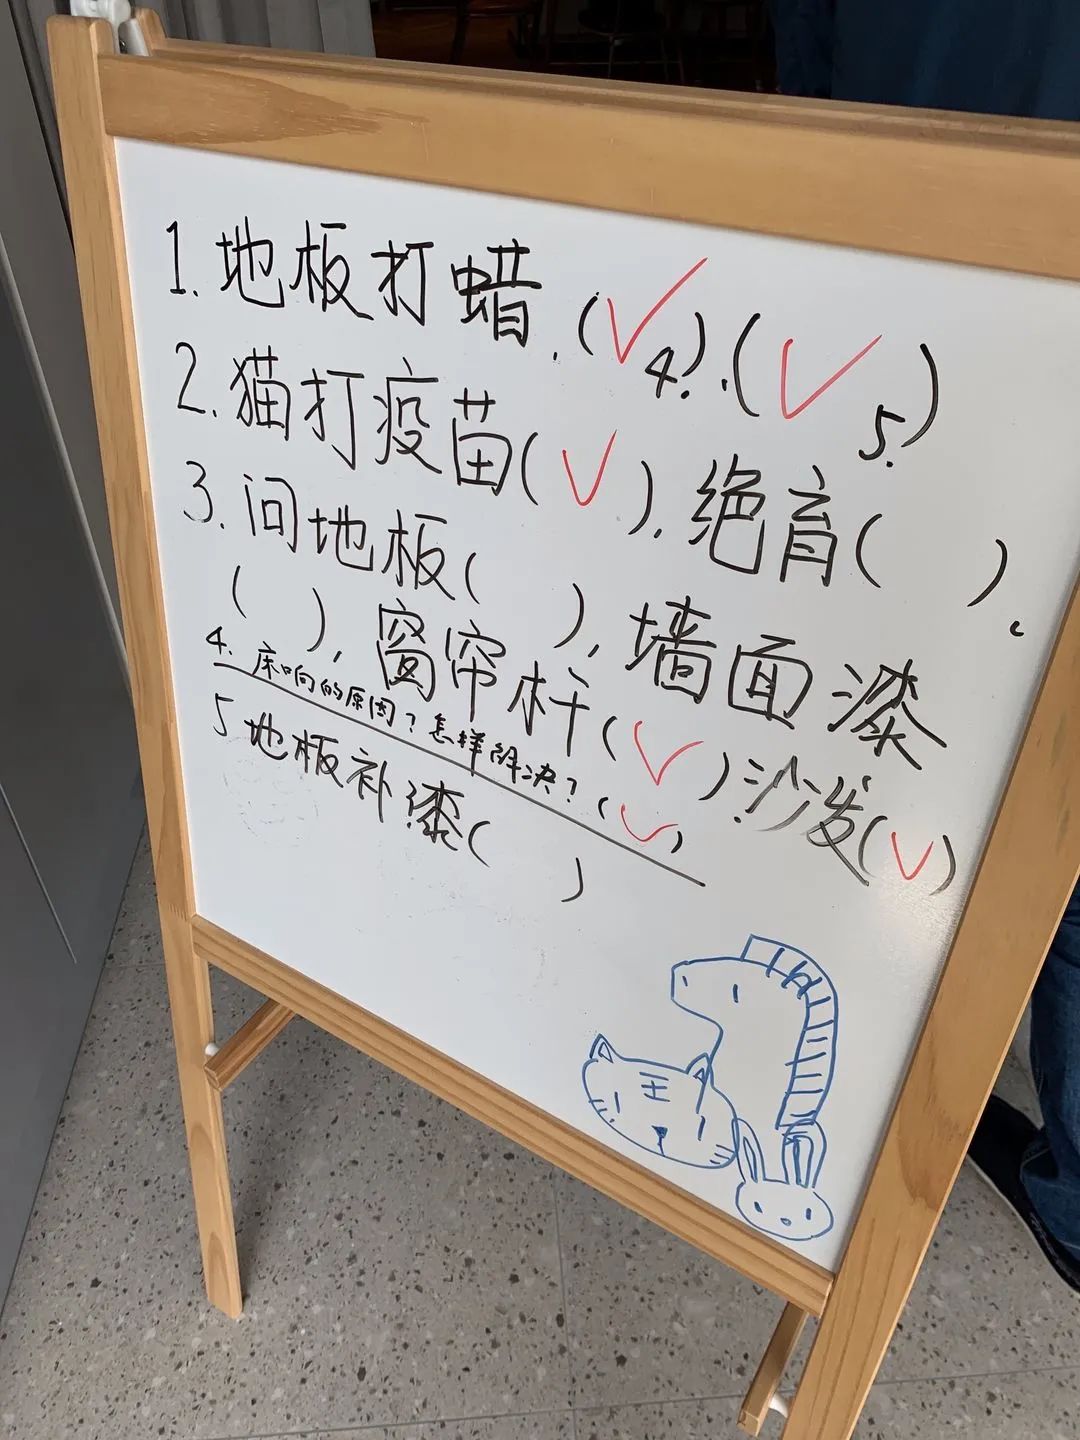 1. 地板打蜡.(✓4.).(✓5.)
2. 猫打疫苗(✓).绝育( ).
3. 问地板( ),墙面漆
( ),窗帘杆(✓).沙发(✓)
4. 床响的原因?怎样解决?(✓)
5 地板补漆( )
王